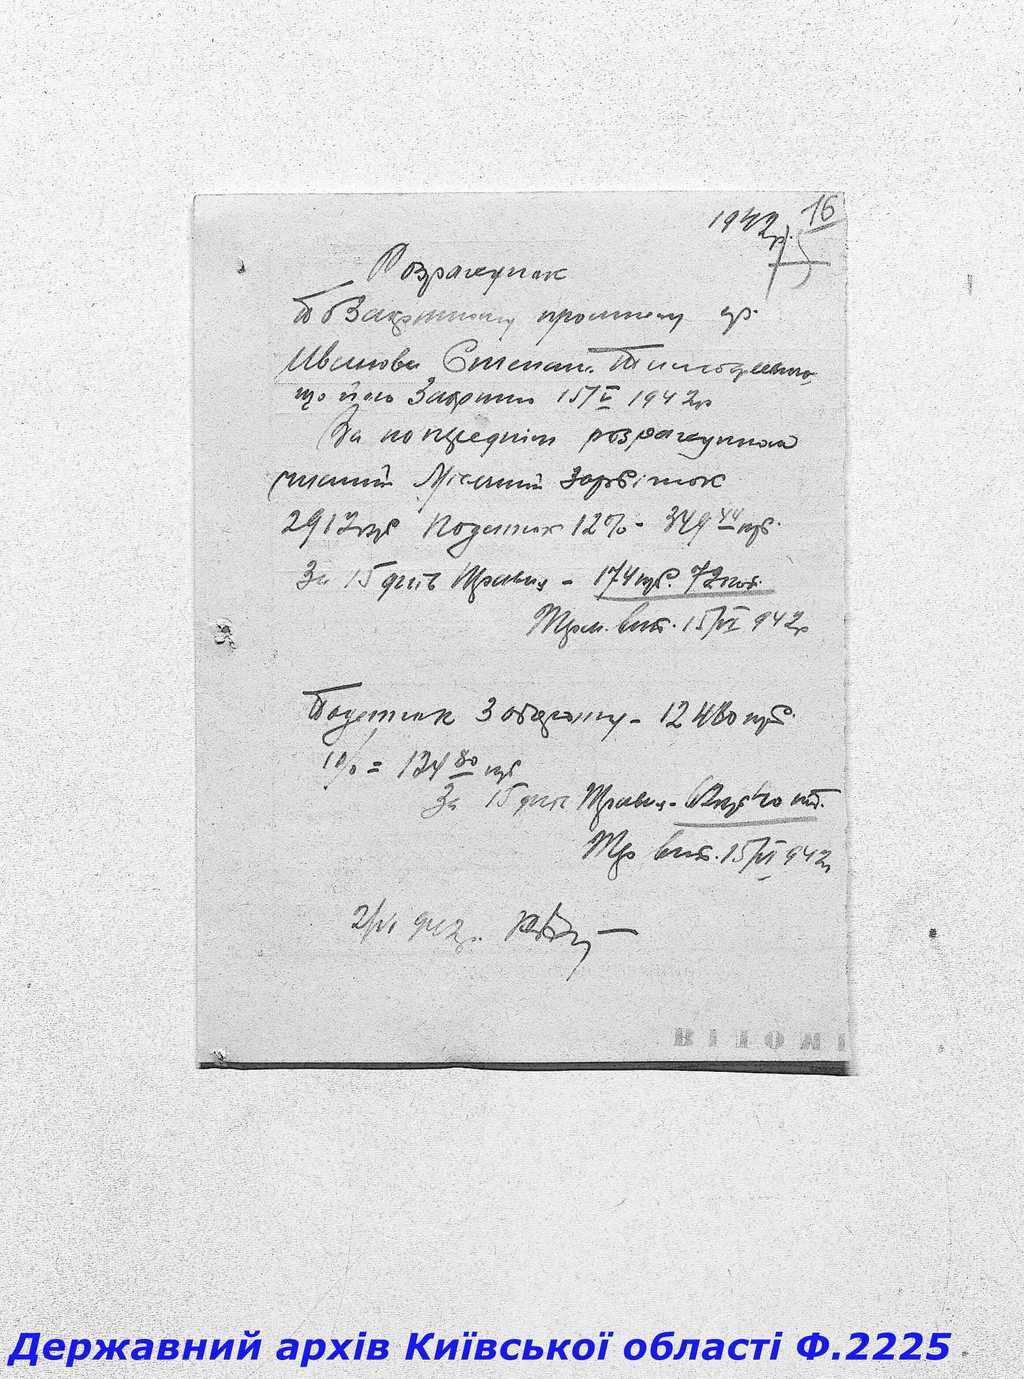 1942р. 16
75
Розрахунок
По Закритому промислу гр.
Иванова Степан. Тимофеевича,
що його Закрито 15/V 1942р
За попереднім розрахунком
чистий Місячний Заробіток
2912 руб Податок 12% - 349 44 руб.
За 15 днів Травня - 174 руб. 72 коп.
Трм. вип. 15/VI 942р
Податок З обороту - 12480 руб.
1% = 124 80 руб
За 15 днів Травня - 62 руб 40 коп.
Тр вип. 15/VI 942р
2/VI 942р.
Державний архів Київської області Ф.2225